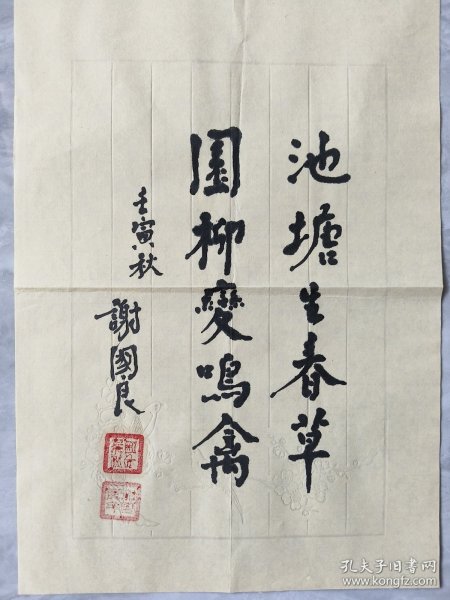 池塘生春草
園柳變鳴禽
壬寅秋
謝國良
孔夫子旧书网
www.kongfz.com